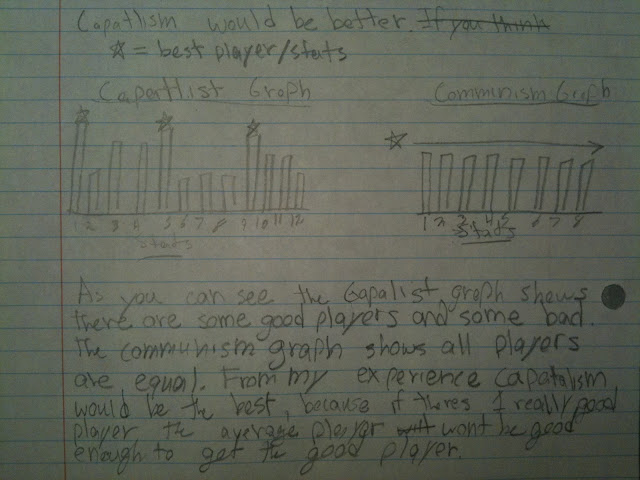 Capatlism would be better. If you think
☆ = best player/stats
Capertlist Graph
Communism Graph
1 2 3 4 5 6 7 8 9 10 11 12
stats
1 2 3 4 5 6 7 8
stats
As you can see the Capalist graph shows
there are some good players and some bad.
The communism graph shows all players
are equal. From my experience capatalism
would be the best, because if theres 1 really good
player the average player wont be good
enough to get the good player.